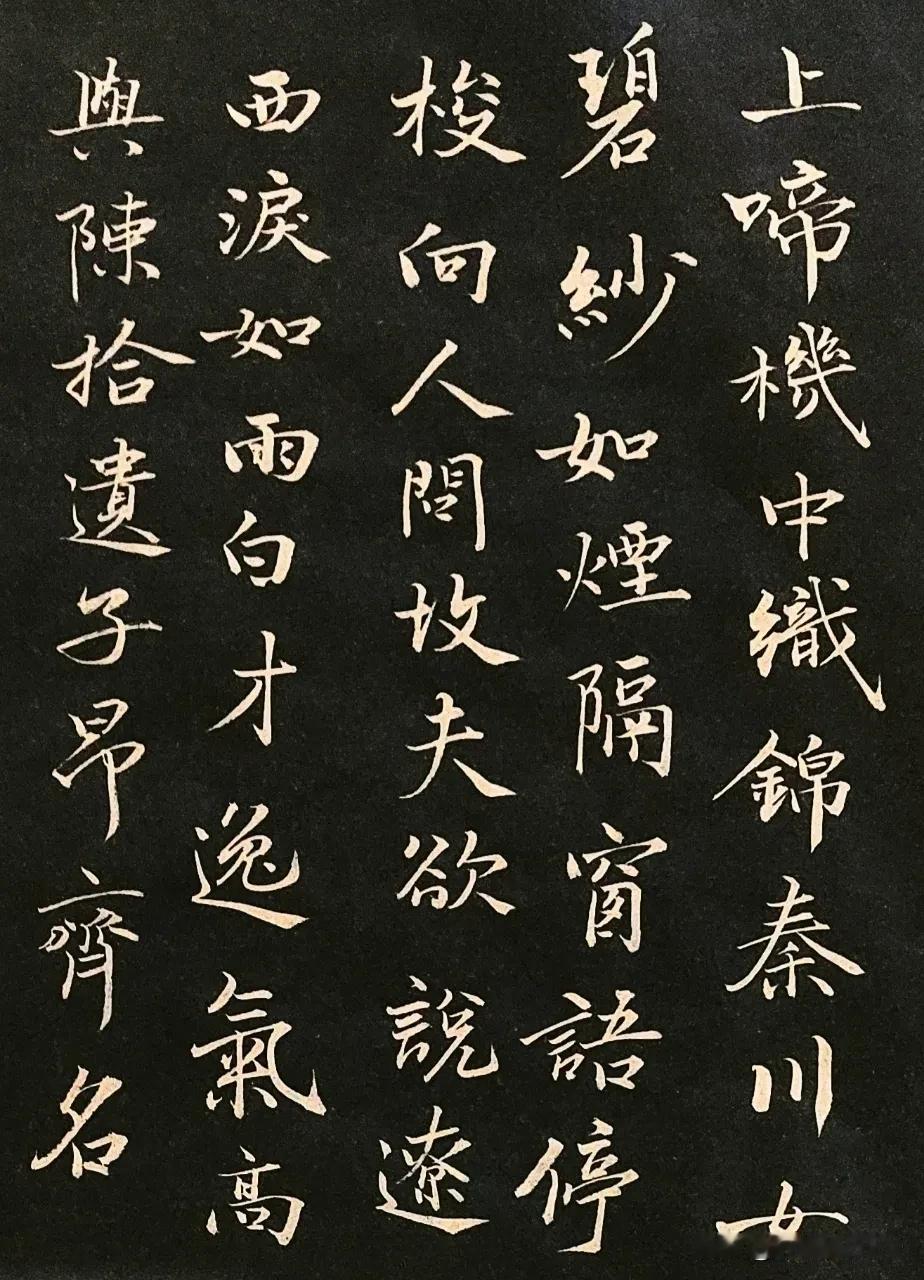 上啼機中織錦秦川女
碧紗如煙隔窗語停
梭向人問故夫欲說遼
西淚如雨白才逸氣高
與陳拾遺子昂齊名